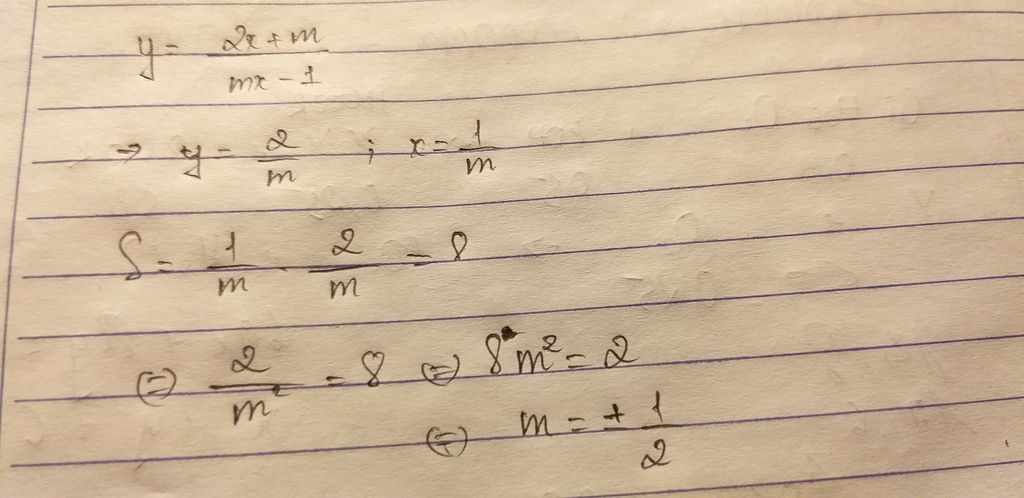 y = \frac{2x+m}{mx-1}
→ y = \frac{2}{m} ; x = \frac{1}{m}
S = \frac{1}{m} . \frac{2}{m} = 8
(=) \frac{2}{m^2} = 8 (=) 8m^2 = 2
(=) m = ± \frac{1}{2}